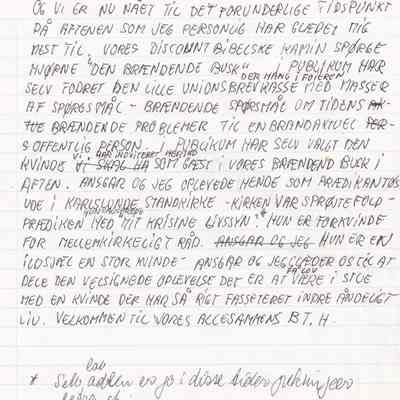 OG VI ER NU NÅET TIL DET FORUNDERLIGE TIDSPUNKT
PÅ AFTENEN SOM JEG PERSONLIG HAR GLÆDET MIG
MEST TIL. VORES DISCOUNT BIBELSKE KAMIN SPØRGE
HJØRNE "DEN BRÆNDENDE BUSK" I PUBLIKUM HAR
DER HANG I FOIEREN
SELV FODRET DEN LILLE UNIONSBREVKASSE MED MASSER
AF SPØRGSMÅL - BRÆNDENDE SPØRSMÅL OM TIDENS
BRÆNDENE PROBLEMER TIL EN BRANDAKTUEL
OFFENTLIG PERSON. I PUBLIKUM HAR SELV VALGT DEN
VI HAR INVITERET HERIND
KVINDE VI SKAL HA SOM GÆST I VORES BRÆNDEND BUSK I
AFTEN. ANSGAR OG JEG OPLEVEDE HENDE SOM PRÆDIKANTØS
UDE I KARLSLUNDE STANDKIRKE - KIRKEN VAR SPRØTEFOLD -
PRÆDIKEN MED MIT KRISINE LIVSSYN.* HUN ER FORKVINDE
FOR MELLEMKIRKELIGT RÅD. ANSGAR OG JEG HUN ER EN
ILDSJÆL EN STOR KVINDE - ANSGAR OG JEG GLÆDER OS TIL AT
FÅ LOV
DELE DEN VELSIGNEDE OPLEVELSE DET ER AT VÆRE I STUE
MED EN KVINDE DER HAR SÅ RIGT FASSETERET INDRE ÅNDELIGT
LIV. VELKOMMEN TIL VORES ALLESAMMENS B.T.H.
* Selv er jo i disse tider